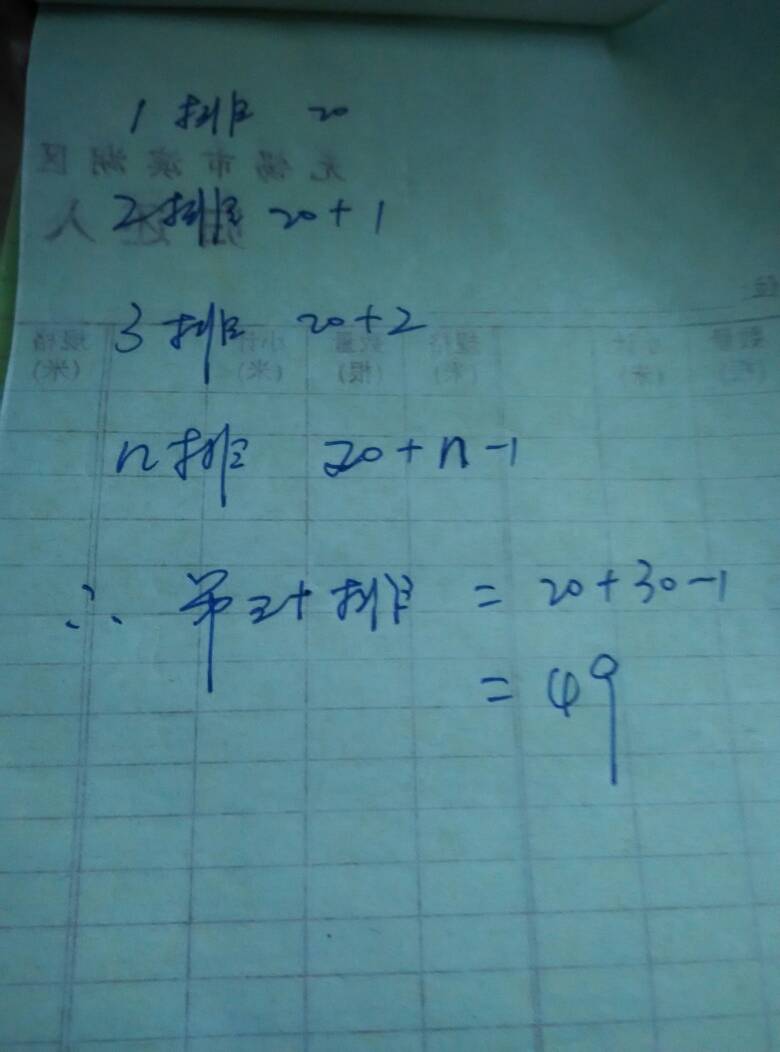 1排 20
无锡市滨湖区
2排 20+1
人
3排 20+2
数量 小计 规格 数量 小计 规格
(米) (米) (根) (米) (米)
n排 20+n-1
∴ 第三十排 = 20+30-1
= 49